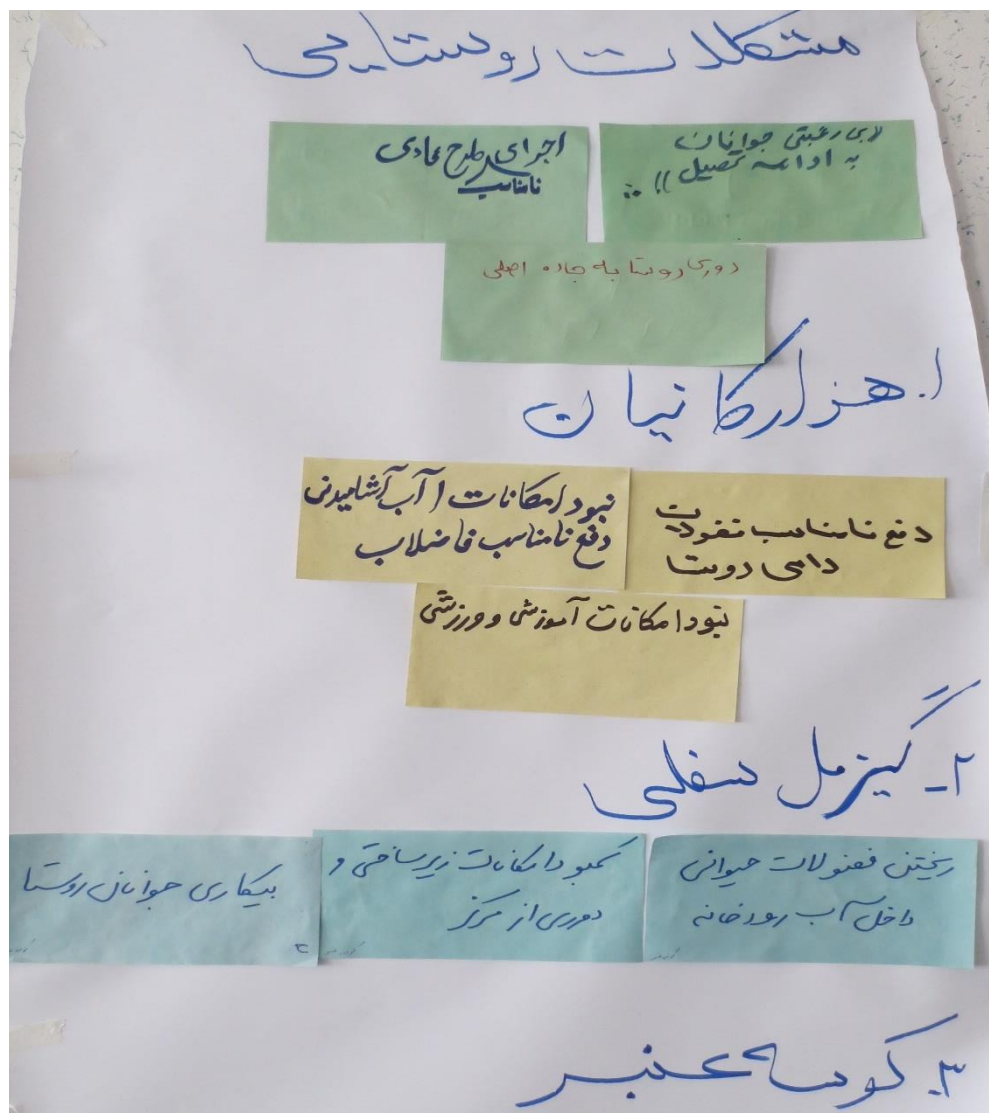 مشکلات روستایی
((بی رغبتی جوانان
به ادامه تحصیل)) ..
اجرای طرح هادی
نامناسب
دوری روستا به جاده اصلی
۱. هزارکانیان
دفع نامناسب
دامی روستا
نبود امکانات (آب آشامیدنی
دفع نامناسب فاضلاب
نبود امکانات آموزشی و ورزشی
۲- گیزمل سفلی
ریختن فضولات حیوانی
داخل آب رودخانه
کمبود امکانات زیرساختی و
دوری از مرکز
بیکاری جوانان روستا
۳. کوسه عنبر